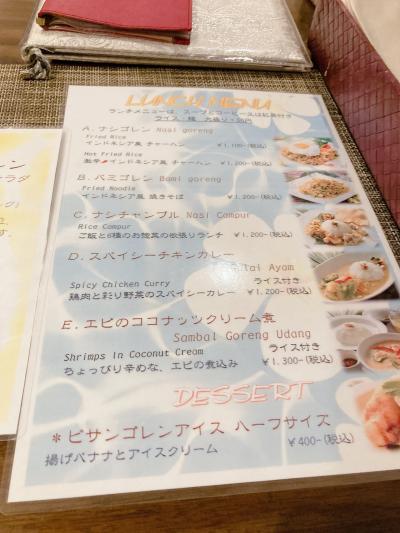 LUNCH MENU
ランチメニューは、スープとコーヒー又は紅茶付き
ライス・麺 大盛り+50円
A. ナシゴレン Nasi goreng
Fried Rice
インドネシア風 チャーハン ¥1,100-(税込)
Hot Fried Rice
激辛 インドネシア風 チャーハン ¥1,200-(税込)
B. バミゴレン Bami goreng
Fried Noodle
インドネシア風 焼きそば ¥1,200-(税込)
C. ナシチャンプル Nasi Campur
Rice Campur
ご飯と6種のお惣菜の欲張りランチ ¥1,200-(税込)
D. スパイシーチキンカレー
Ayam
Spicy Chicken Curry ライス付き
鶏肉と彩り野菜のスパイシーカレー ¥1,200-(税込)
E. エビのココナッツクリーム煮
Sambal Goreng Udang
Shrimps In Coconut Cream ライス付き
ちょっぴり辛めな、エビの煮込み ¥1,300-(税込)
DESSERT
*ピサンゴレンアイス ハーフサイズ
揚げバナナとアイスクリーム ¥400-(税込)
レン
ラダ